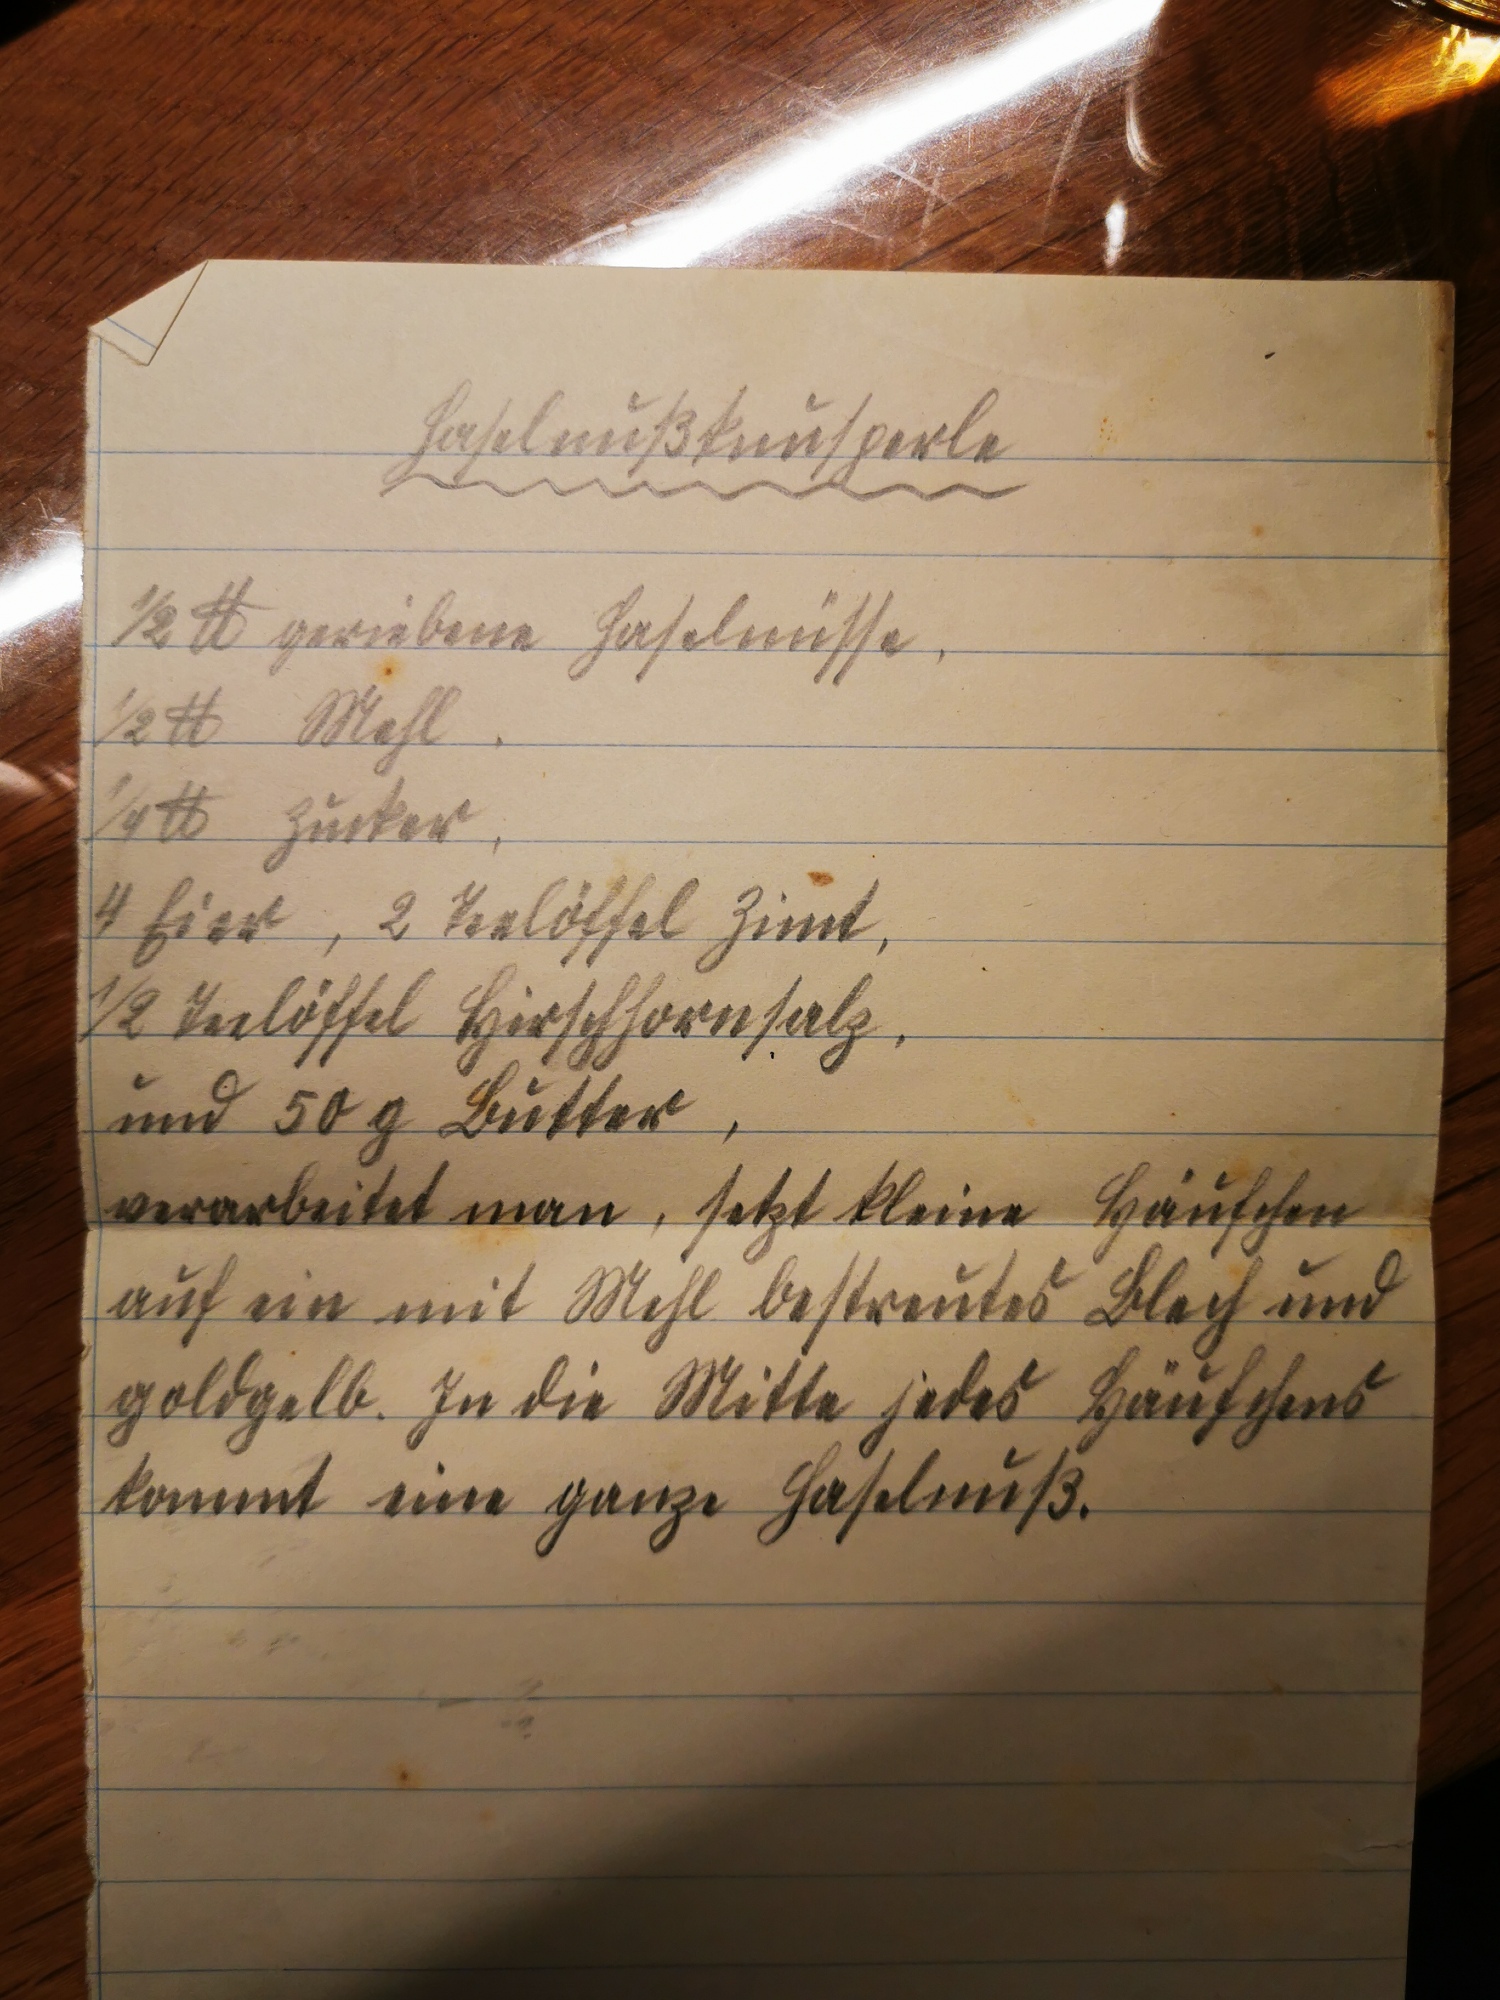 Haselnußknusperle
1/2 ℔ geriebene Haselnüsse,
1/2 ℔ Mehl,
1/4 ℔ Zucker,
4 Eier, 2 Teelöffel Zimt,
1/2 Teelöffel Hirschhornsalz,
und 50 g Butter,
verarbeitet man, setzt kleine Häufchen
auf ein mit Mehl bestreutes Blech und
goldgelb. In die Mitte jedes Häufchens
kommt eine ganze Haselnuß.